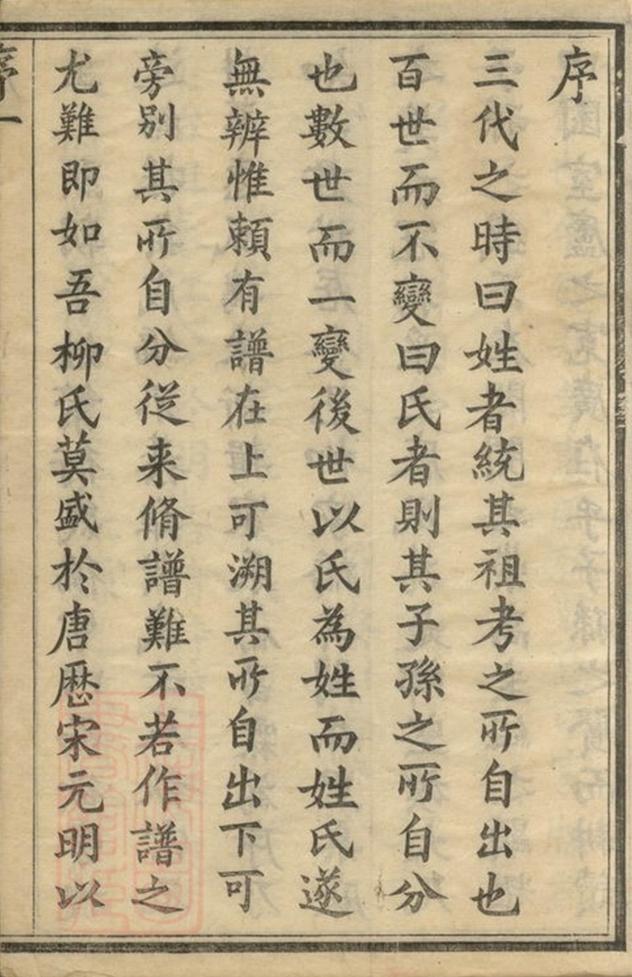 序
三代之時曰姓者統其祖考之所自出也
百世而不變曰氏者則其子孫之所自分
也數世而一變後世以氏為姓而姓氏遂
無辨惟頼有譜在上可溯其所自出下可
旁別其所自分從来脩譜難不若作譜之
尤難即如吾柳氏莫盛於唐歷宋元明以
序一